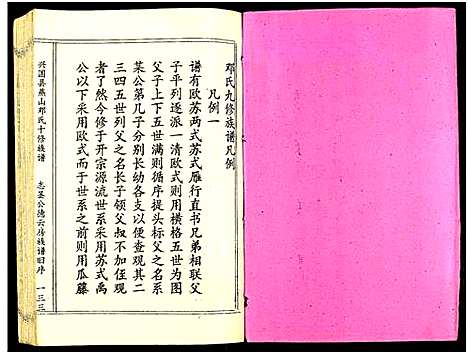 邓氏九修族谱凡例
凡例一
谱有欧苏两式苏式雁行直书兄弟相联父
子平列逐派一清欧式则用横格五世为图
父子上下五世满则循序提头标父之名系
某公第几子分别长幼各支以便查观其二
三四五世列父之名长子领父叔不加侄观
者了然今修于开宗源流世系采用苏式禹
公以下采用欧式而于世系之前则用瓜藤
兴国县燕山邓氏十修族谱
志圣公德云房族谱旧序
一三三